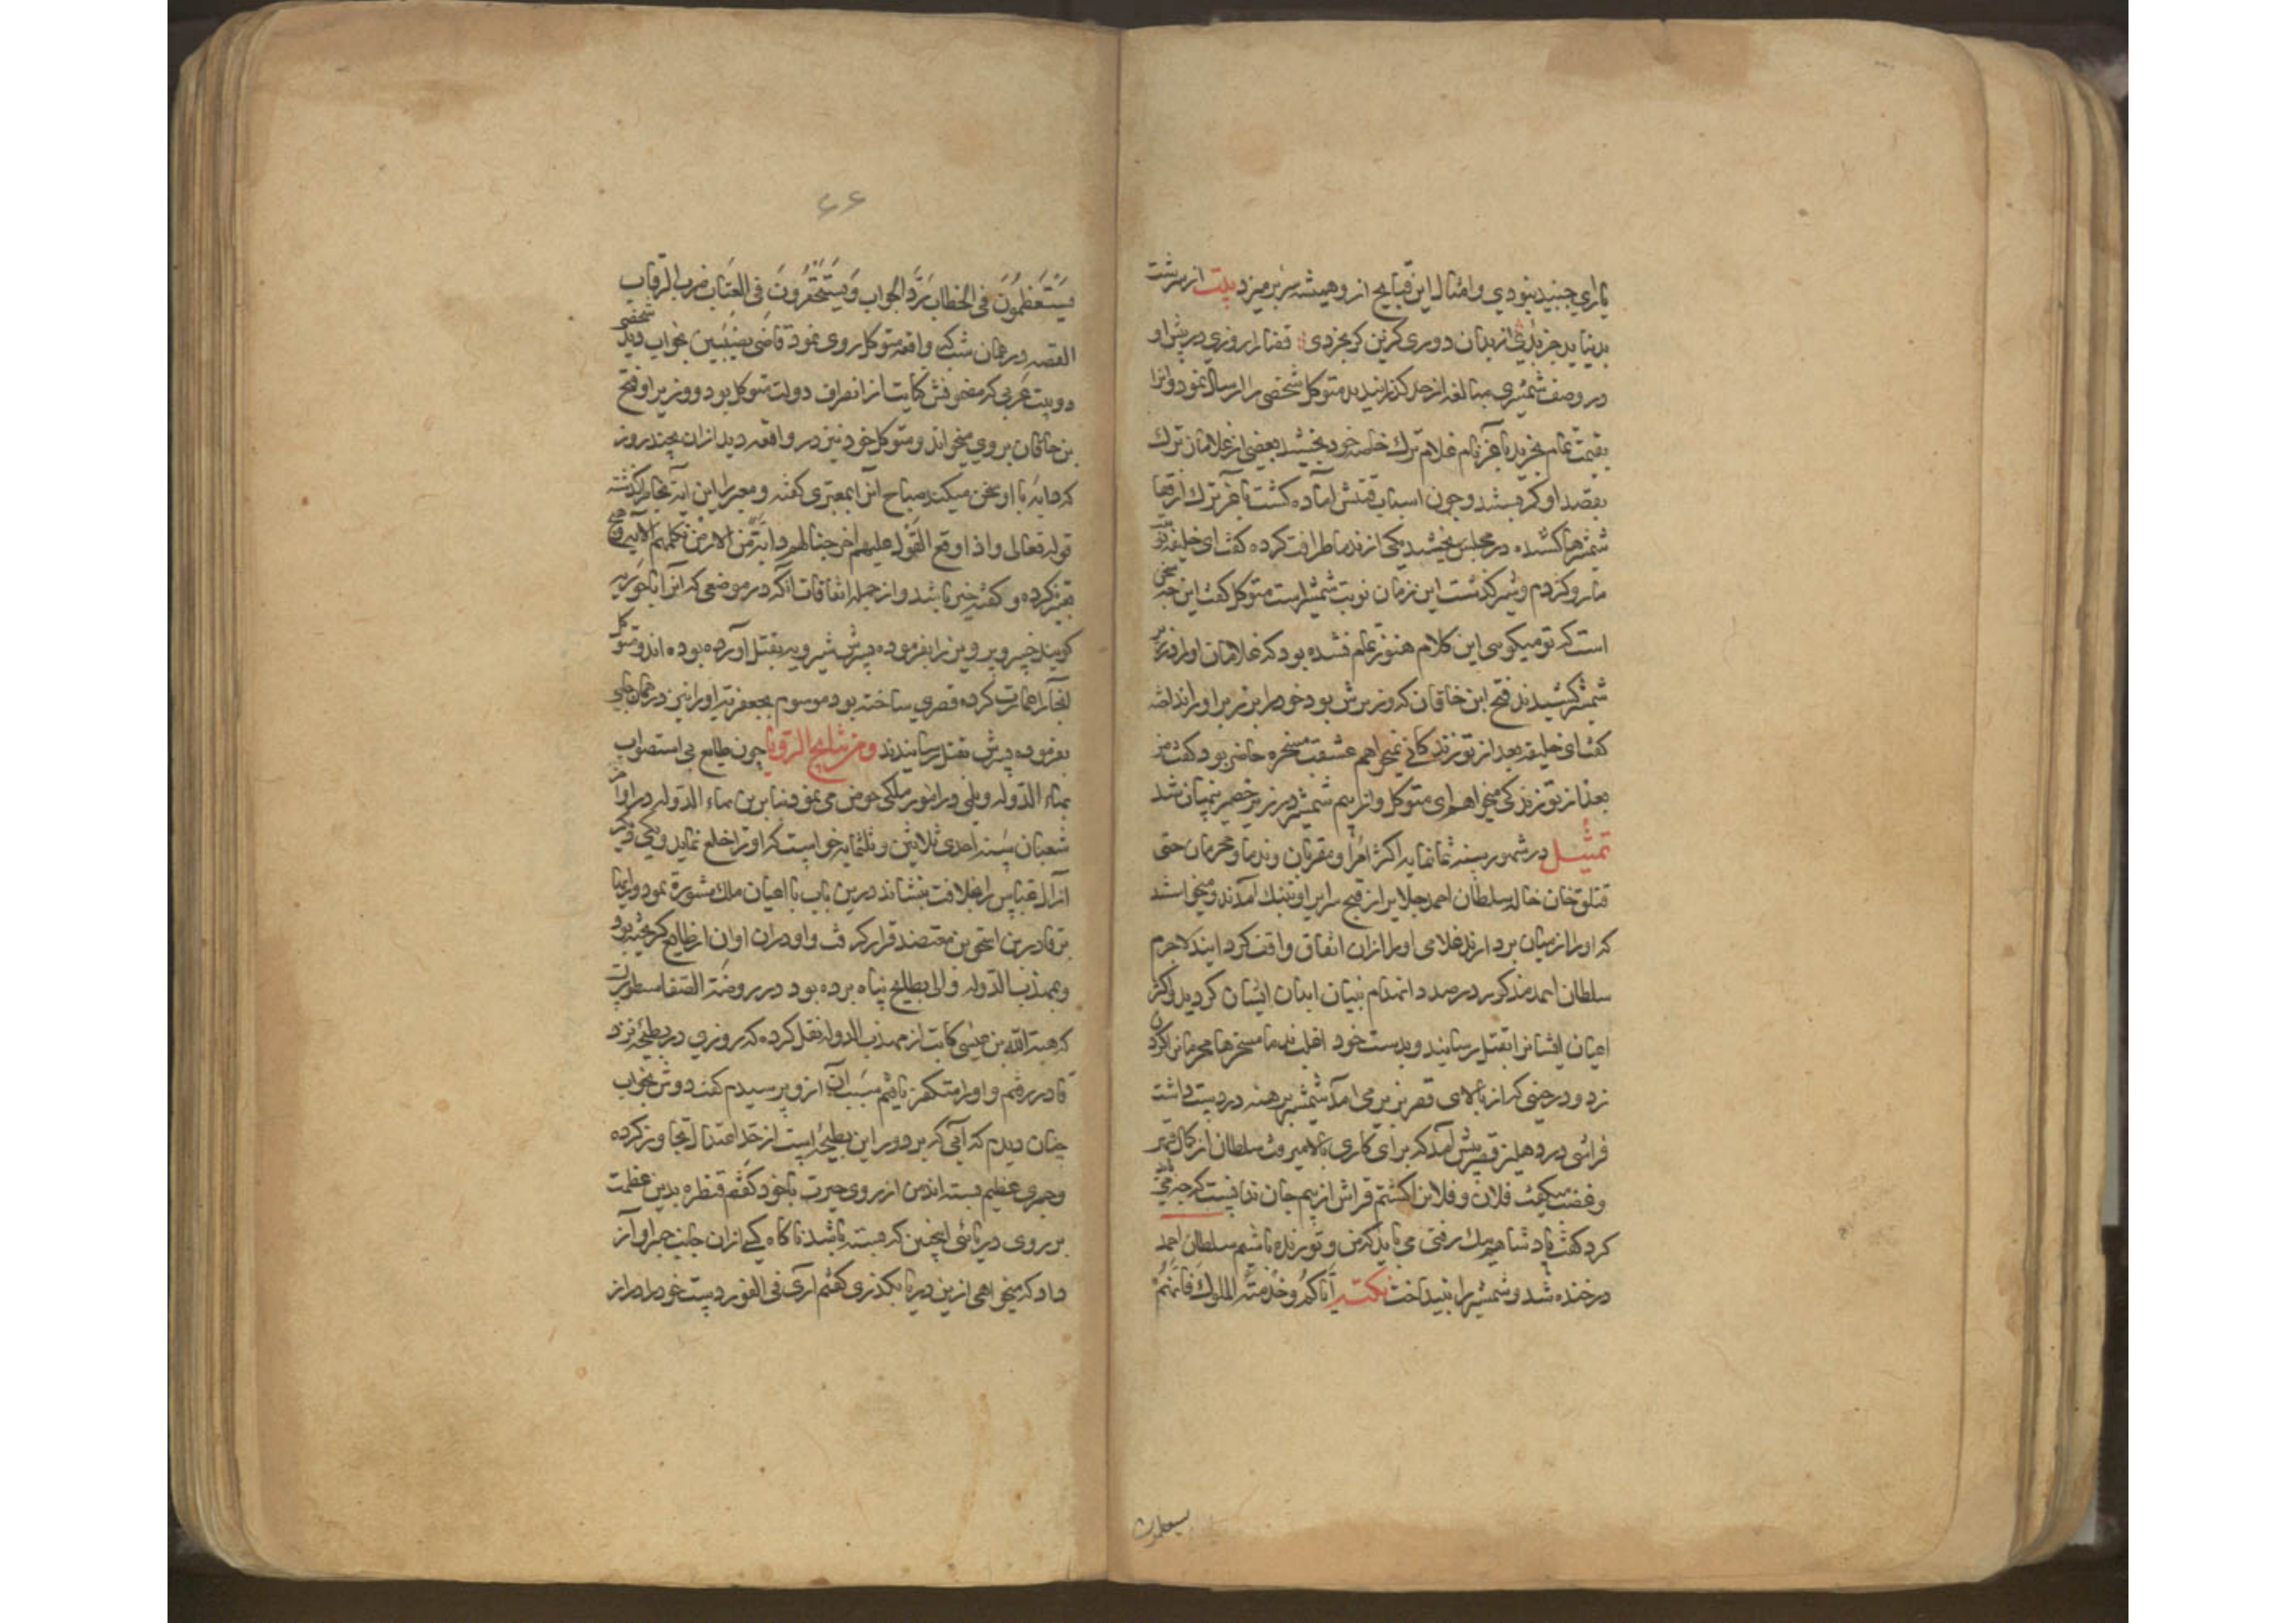 یارای جنبید نبودی و امثال این قبایح ازو همیشه سر بر میزد بیت از سرشت
بد نیاید جز بدی از بدان دوری گزین گر بخردی قضا را روزی در پیش او
در وصف شمشیری مبالغه از حد گذرانیدند متوکل شخصی را ارسال نمود و انرا
بقیمت تمام بخرید باغر نام غلام ترک خاصه خود بخشید بعضی از غلامان ترک
بقصد او کر بستند و چون اسباب قتلش آماده کشت باغر ترک از قفا
شمشیرها کشیده در مجلس یکی از ندما ظرافت کرده کفت ای خلیفه
مار و کژدم و شیر کذشت این زمان نوبت شمشیر است متوکل کفت این چه سخن
است که تو میکویی این کلام هنوز تمام نشده بود که غلامان او را در زیر
شمشیر کشیدند فتح ابن خاقان که وزیرش بود خود را بر زبر او انداخت
کفت ای خلیفه بعد از تو زندکانی نمیخواهم عشیقه مسخره حاضر بود کفت من
بعد از تو زندکی میخواهم ای متوکل و از بیم شمشیر در زیر حصیر پنهان شد
تمثیل در شهور سنه ثمانمایه اکثر امرا و مقربان و ندما و محرمان حتی
قتلق خان خاله سلطان احمد جلایر از قبح سرایر او بتنک آمدند و میخواستند
که او را از میان بردارند غلامی او را از ان اتفاق واقف کردانیند لاجرم
سلطان احمد مذکور در صدد انهدام بنیان ابدان ایشان کردید و اکثر
اعیان ایشانرا بقتل رسانید و بدست خود اغلب ندما مسخرها محرمانرا کردن
زد و در حینی که از بالای قصر بزیر می آمد شمشیر برهنه در دست داشت
فراشی در دهلیز قصر پیش آمد که برای کاری بالا میرفت سلطان از کمال قهر
و غضب میکفت فلان و فلان را کشتم فراش از بیم جان ندانست که چه می باید
کرد کفت پادشاهم نیک رفتی می باید که من و تو زنده باشیم سلطان احمد
در خنده شد و شمشیر را بینداخت نکته ایاکم و خدمة الملوک فانهم
یستعظمون
۶۶
یستعظمون فی الخطاب رد الجواب و یستحقرون فی العتاب ضرب الرقاب
القصه در همان شب که واقعه متوکل روی نمود قاضی نصیبین بخواب دید شخصی
دو بیت عربی که مضمونش کنایت از انصراف دولت متوکل بود و وزیر او فتح
بن خاقان بر وی میخواند و متوکل خود نیز در واقعه دید از ان بچند روز
که دابه با او سخن میکند صباح آنرا بمعبری کفته و معبر را این آیه بخاطر کذشته
قوله تعالی و اذا وقع القول علیهم اخرجنا لهم دابة من الارض تکلمهم الآیه
تعبیر نکرده و کفته خیر باشد و از جمله اتفاقات آنکه در موضعی که آنرا ماحوزیه
کویند خسرو پرویز را بفرموده پسرش شیرویه بقتل آورده بوده اند و متوکل
آنجا را عمارت کرده قصری ساخته بود موسوم بجعفریه او را نیز در همان جای
بفرموده پسرش بقتل رسانیدند و من نتایج الرؤیا چون طایع بی استصواب
بهاء الدوله دیلمی در امور ملکی خوض می نمود بنابرین بهاء الدوله در اواخر
شعبان سنه احدی ثلاثین و ثلثمایه خواست که او را خلع نماید و یکی دیگر
از آل عباس را بخلافت بنشاند درین باب با اعیان ملک مشورة نمود و رایها
بر قادر بن اسحق بن معتضد قرار کرفت و او در ان اوان از طایع کریخته بود
و بمهذب الدوله والی بطایح پناه برده بود در روضة الصفا مسطورست
که هبة الله بن عیسی کاتب از مهذب الدوله نقل کرده که روزی در بطیحه نزد
قادر رفتم و او را متفکر یافتم سبب آن ازو پرسیدم کفت دوش بخواب
چنان دیدم که آبی که بر دور این بطیحه است از حد اعتدال تجاوز کرده
و جسری عظیم بسته اند من از روی حیرت با خود کفتم قنطره بدین عظمت
بر روی دریائی اینچنین که بسته باشد ناکاه کسی از ان جانب مرا آواز
داد که میخواهی ازین دریا بکذری کفتم آری فی الفور دست خود را دراز